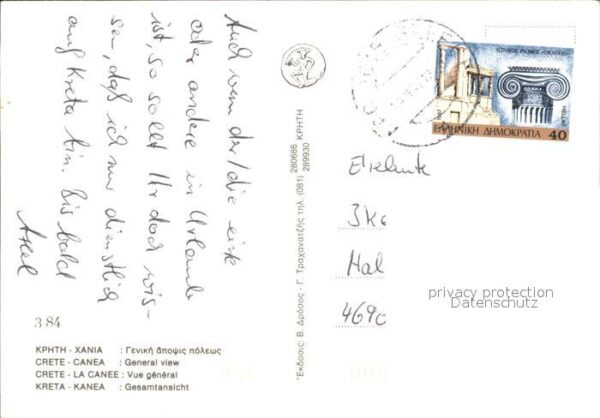 Auch wenn der/die eine
oder andere in Urlaub
ist, so sollt Ihr doch wis-
sen, daß ich nur dienstlich
auf Kreta bin. Bis bald
Axel
384
ΚΡΗΤΗ - ΧΑΝΙΑ : Γενική ἄποψις πόλεως
CRETE - CANEA : General view
CRETE - LA CANEE : Vue général
KRETA - KANEA : Gesamtansicht
Ἐκδόσεις: Β. Δρόσος - Γ. Τραχανατζῆς τηλ. (081) 280686 289930 ΚΡΗΤΗ
ΙΩΝΙΚΟΣ ΡΥΘΜΟΣ
ΕΛΛΗΝΙΚΗ ΔΗΜΟΚΡΑΤΙΑ 40
HELLAS
3Ks
Hal
469c
privacy protection
Datenschutz